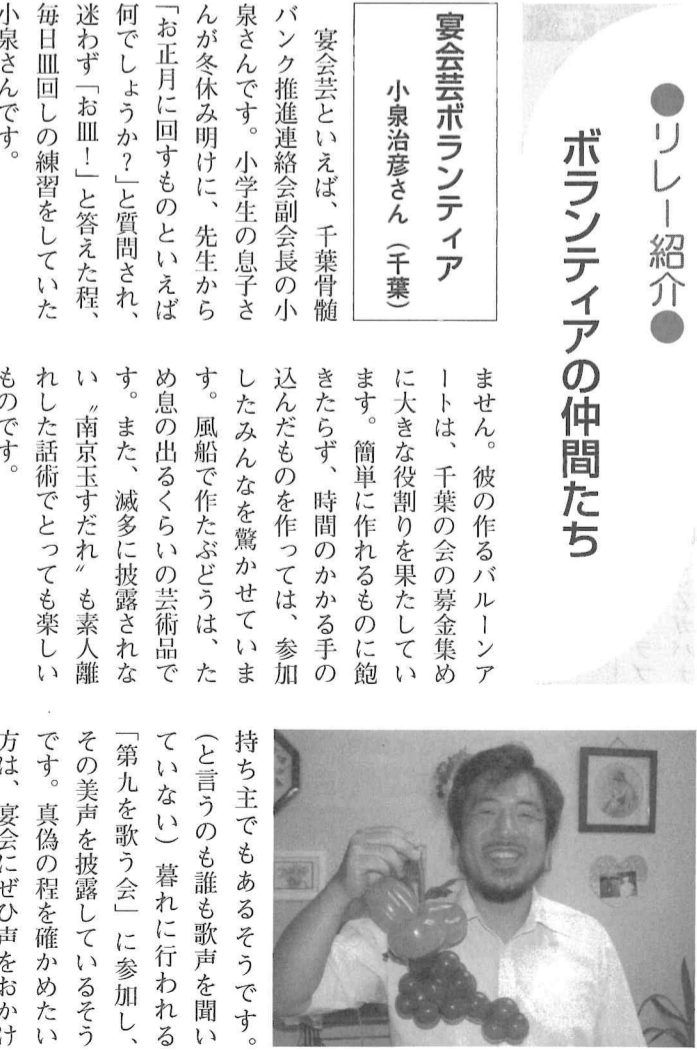 ●リレー紹介●
ボランティアの仲間たち
宴会芸ボランティア
小泉治彦さん（千葉）
宴会芸といえば、千葉骨髄
バンク推進連絡会副会長の小
泉さんです。小学生の息子さ
んが冬休み明けに、先生から
「お正月に回すものといえば
何でしょうか？」と質問され、
迷わず「お皿！」と答えた程、
毎日皿回しの練習をしていた
小泉さんです。
ません。彼の作るバルーンア
ートは、千葉の会の募金集め
に大きな役割りを果たしてい
ます。簡単に作れるものに飽
きたらず、時間のかかる手の
込んだものを作っては、参加
したみんなを驚かせていま
す。風船で作たぶどうは、た
め息の出るくらいの芸術品で
す。また、滅多に披露されな
い〝南京玉すだれ〟も素人離
れした話術でとっても楽しい
ものです。
持ち主でもあるそうです。
(と言うのも誰も歌声を聞い
ていない) 暮れに行われる
「第九を歌う会」に参加し、
その美声を披露しているそう
です。真偽の程を確かめたい
方は、宴会にぜひ声をおかけ